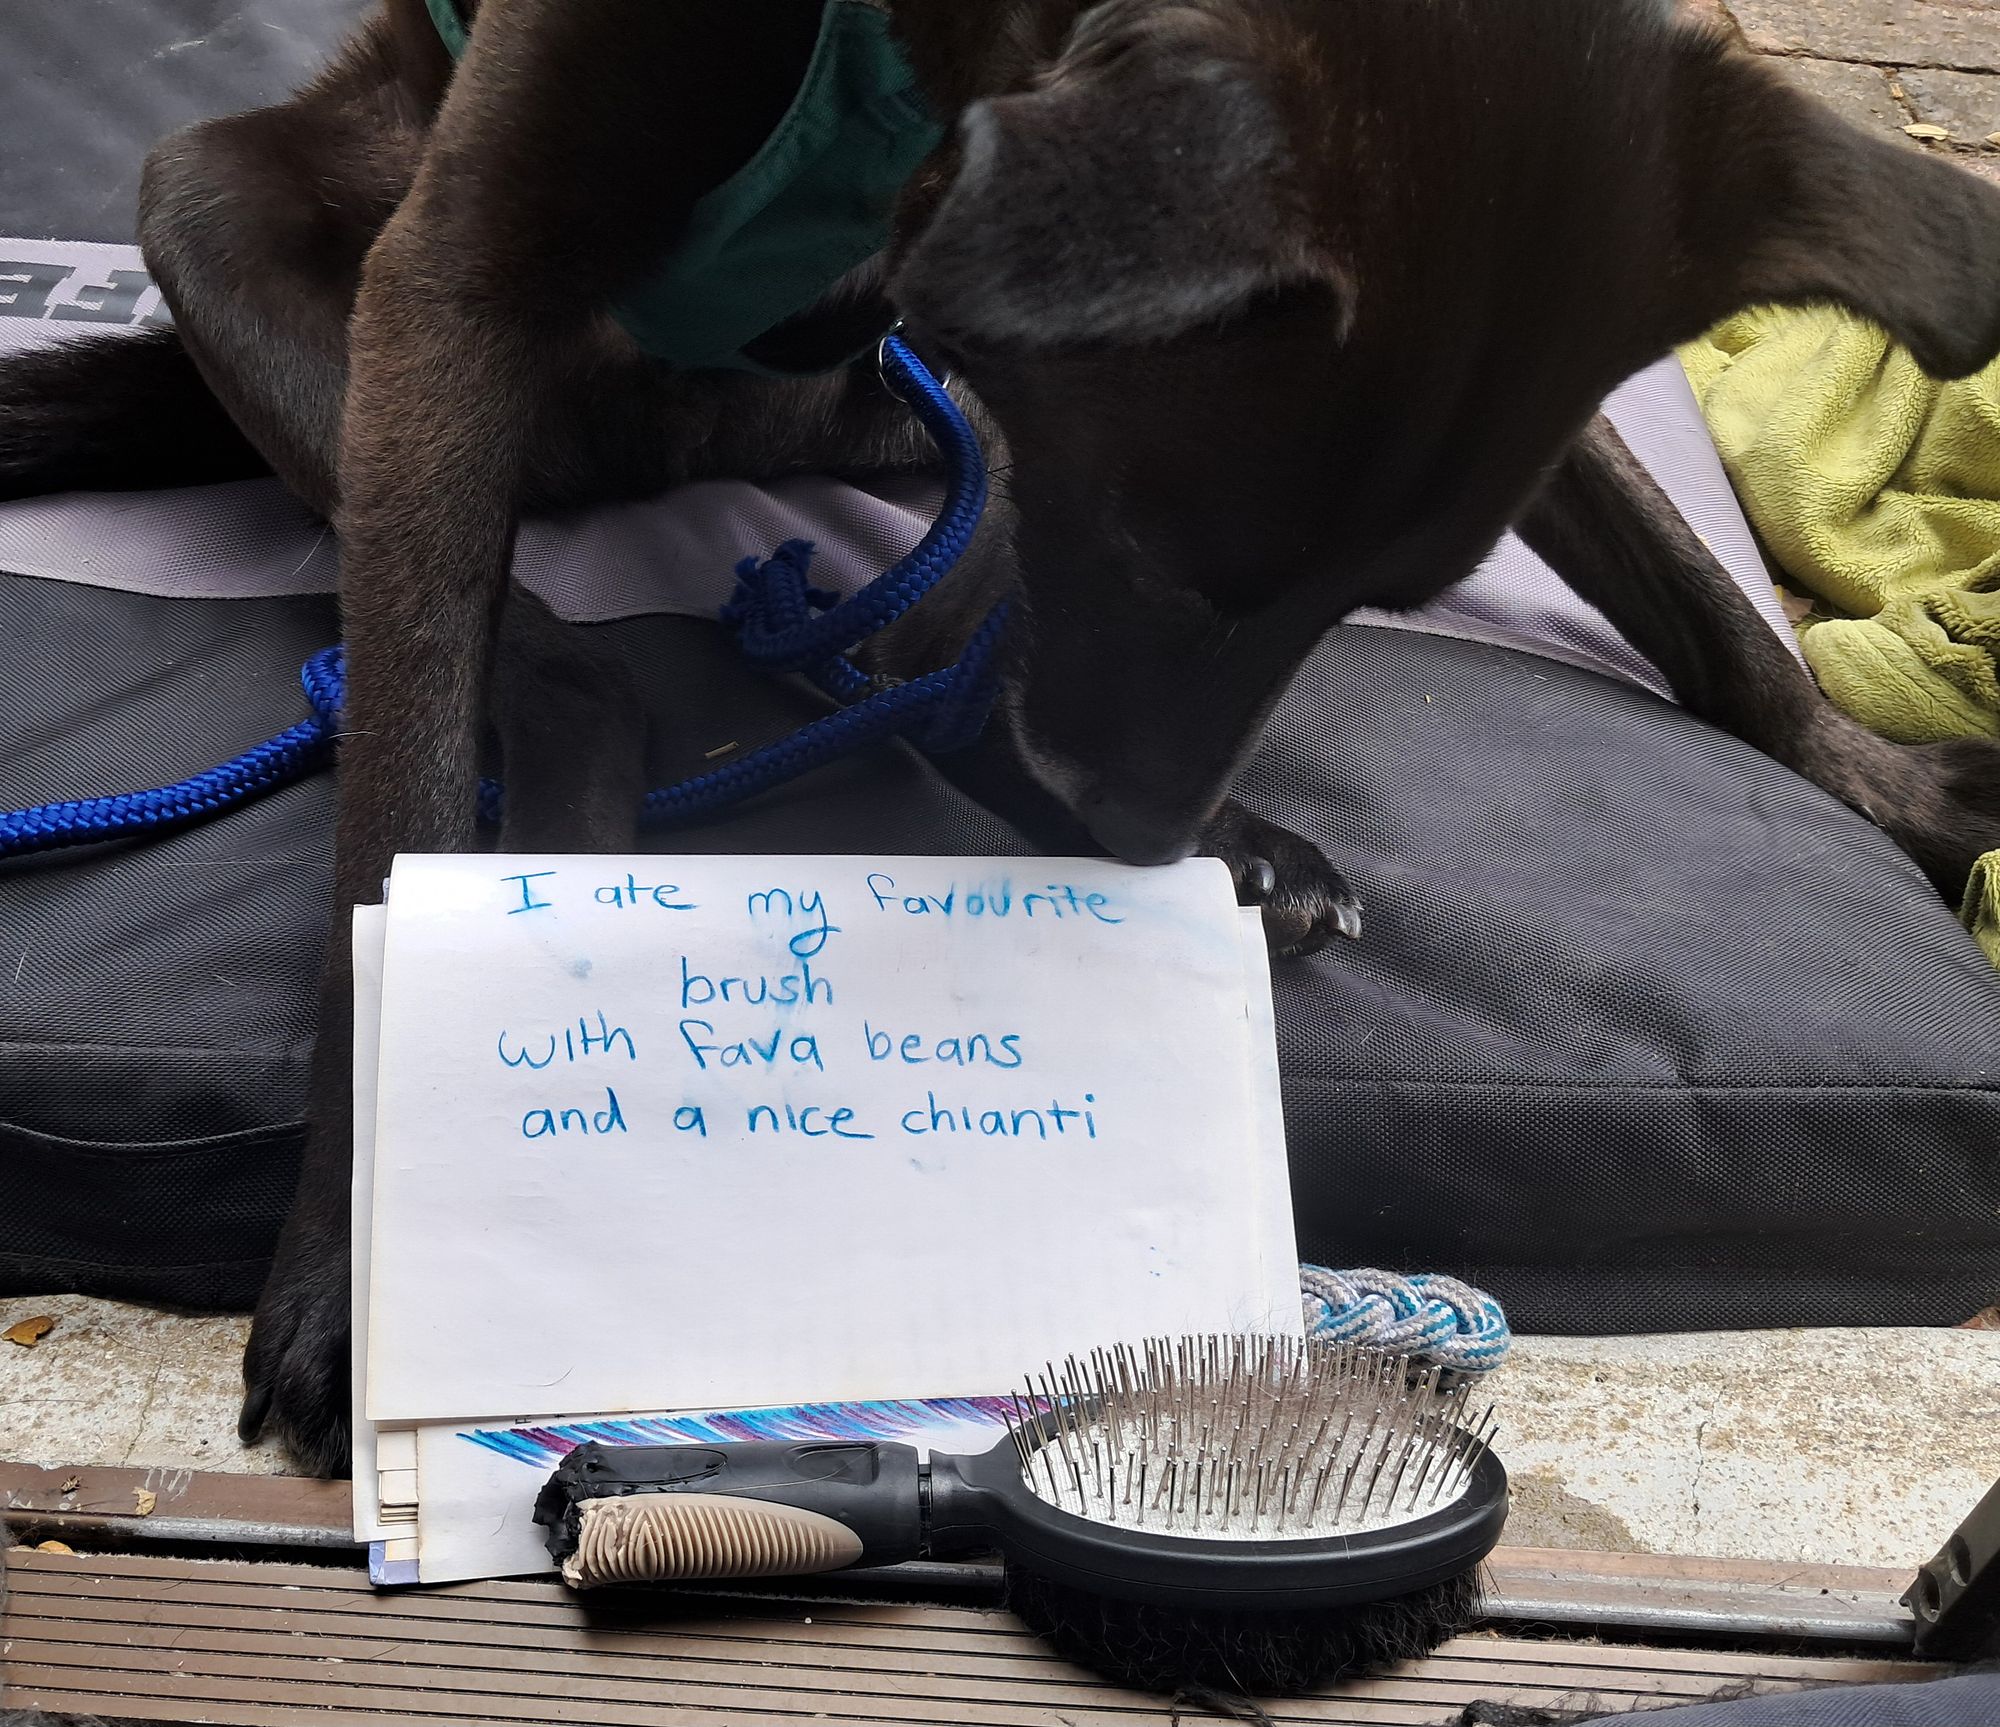 I ate my favourite
brush
with fava beans
and a nice chianti